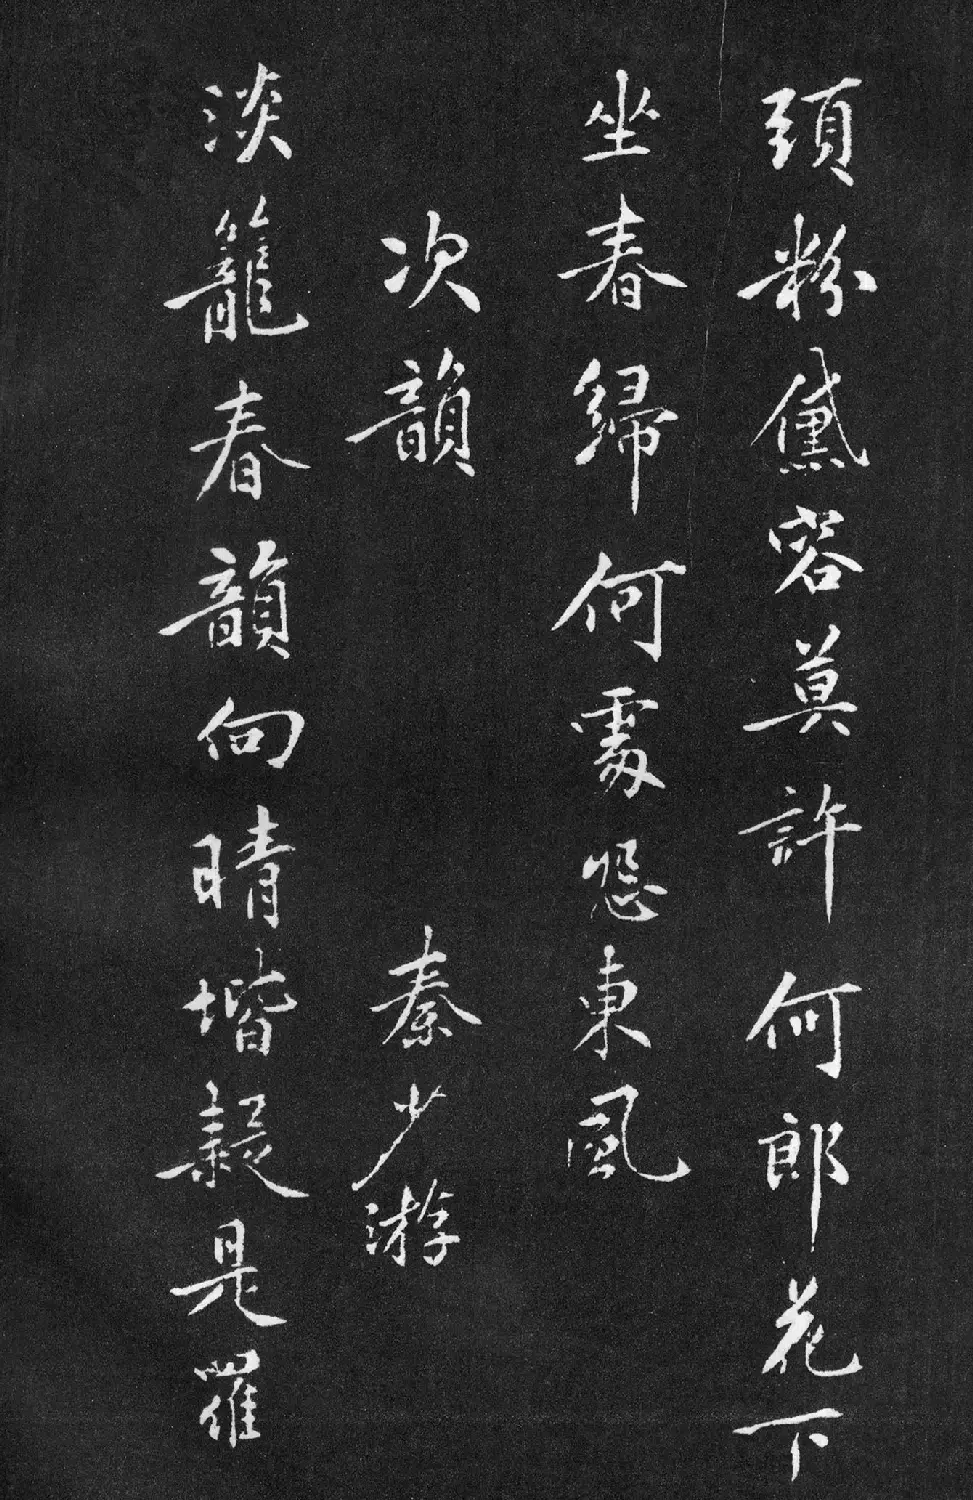 頭粉黛容莫許何郎花下
坐春歸何處怨東風
次韻 秦少游
淡籠春韻向晴堦疑是羅